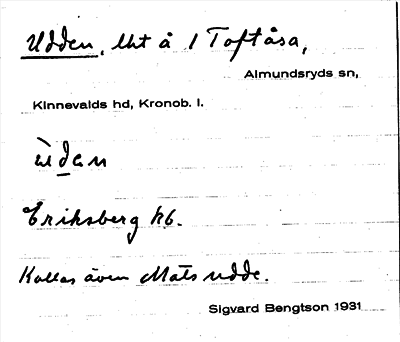 Udden, lht å 1 Toftåsa,
Almundsryds sn,
Kinnevalds hd, Kronob. l.
ùdan
Eriksberg kb.
Kallas även Mats udde.
Sigvard Bengtson 1931